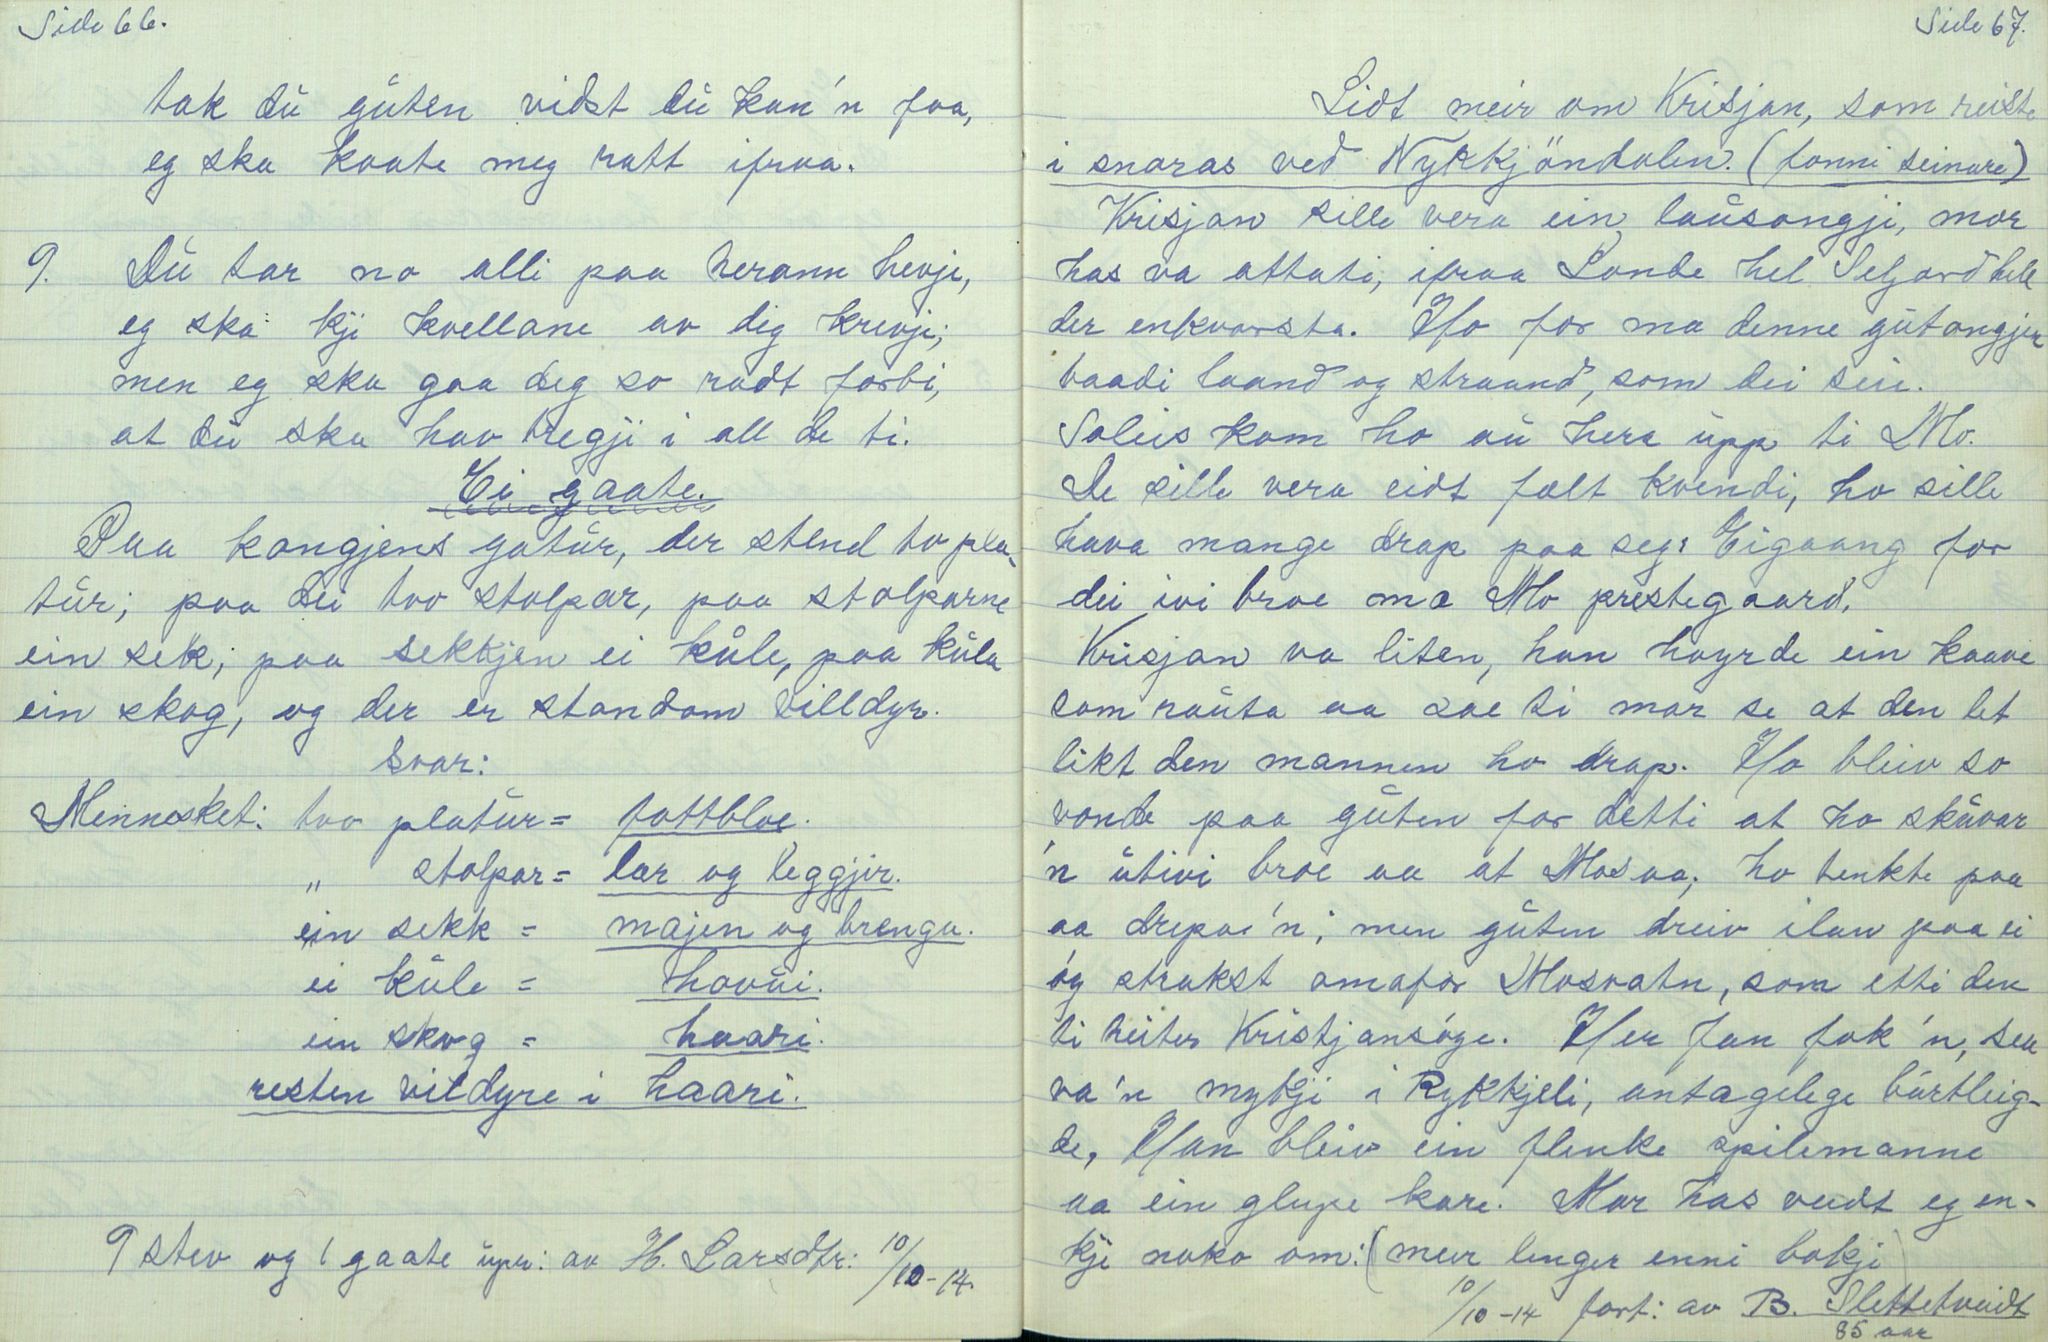 Side 66.
tak dù gùten vidst dù kan'n faa,
eg ska kaate meg ratt ifraa.
9. Dù tar no alli paa herann hevje,
eg ska kji kvellane av dig krevje;
men eg ska gaa deg so radt forbi,
at dù ska hav tregji i all de ti.
Ei gaate.
Paa kongjens gatùr, der stend tvo pla-
tùr; paa dei tvo stolpar, paa stolparne
ein sek; paa sekkjen ei kùle, paa kùla
ein skog, og der er standom villdyr.
Svar:
Mennesket: tvo platùr = fottbloe.
" stolpar = lar og leggjir.
ein sekk = majen og brenga.
ei kùle = hovùi.
ein skog = haari.
resten vildyre i haari.
9 stev og 1 gaate upr: av H. Larsdtr: 10/10-14.
Side 67.
Lidt meir om Krisjan, som reiste
i snaras ved Nykkjöndalen. (fonni seinare)
Krisjan sille vera ein laùsongji, mor
has va attati, ifraa Lande hel Seljord hell
der enkvarsta. Ho for ma denne gùtongjen
baadi laand og straand, som dei seie.
Soleis kom ho aù hera ùpp ti Mo.
De sille vera eidt fælt kvendi, ho sille
hava mange drap paa seg: Eigaang for
dei ivi broe ma Mo prestegaard.
Krisjan va liten, han hoyrde ein kaave
som raùta aa sae ti mor se at den let
likt den mannen ho drap. Ho bleiv so
vonde paa gùten for detti at ho skùvar
'n ùtivi broe aa at Mosaa; ho tenkte paa
aa drepae'n; men gùten dreiv ilan paa ei
óg strakst omafor Mosvatn, som etti den
ti heiter Kristjansóge. Her fan fok'n, sea
va'n mykji i Rykkjeli, antagelege bùrtleig-
de, Han bleiv ein flinke spilemanne
aa ein glupe kare. Mor has veidt eg en-
kji noko om: (meir lenger enni bokji)
10/10-14 fort: av B. Slettetveidt
85 aar